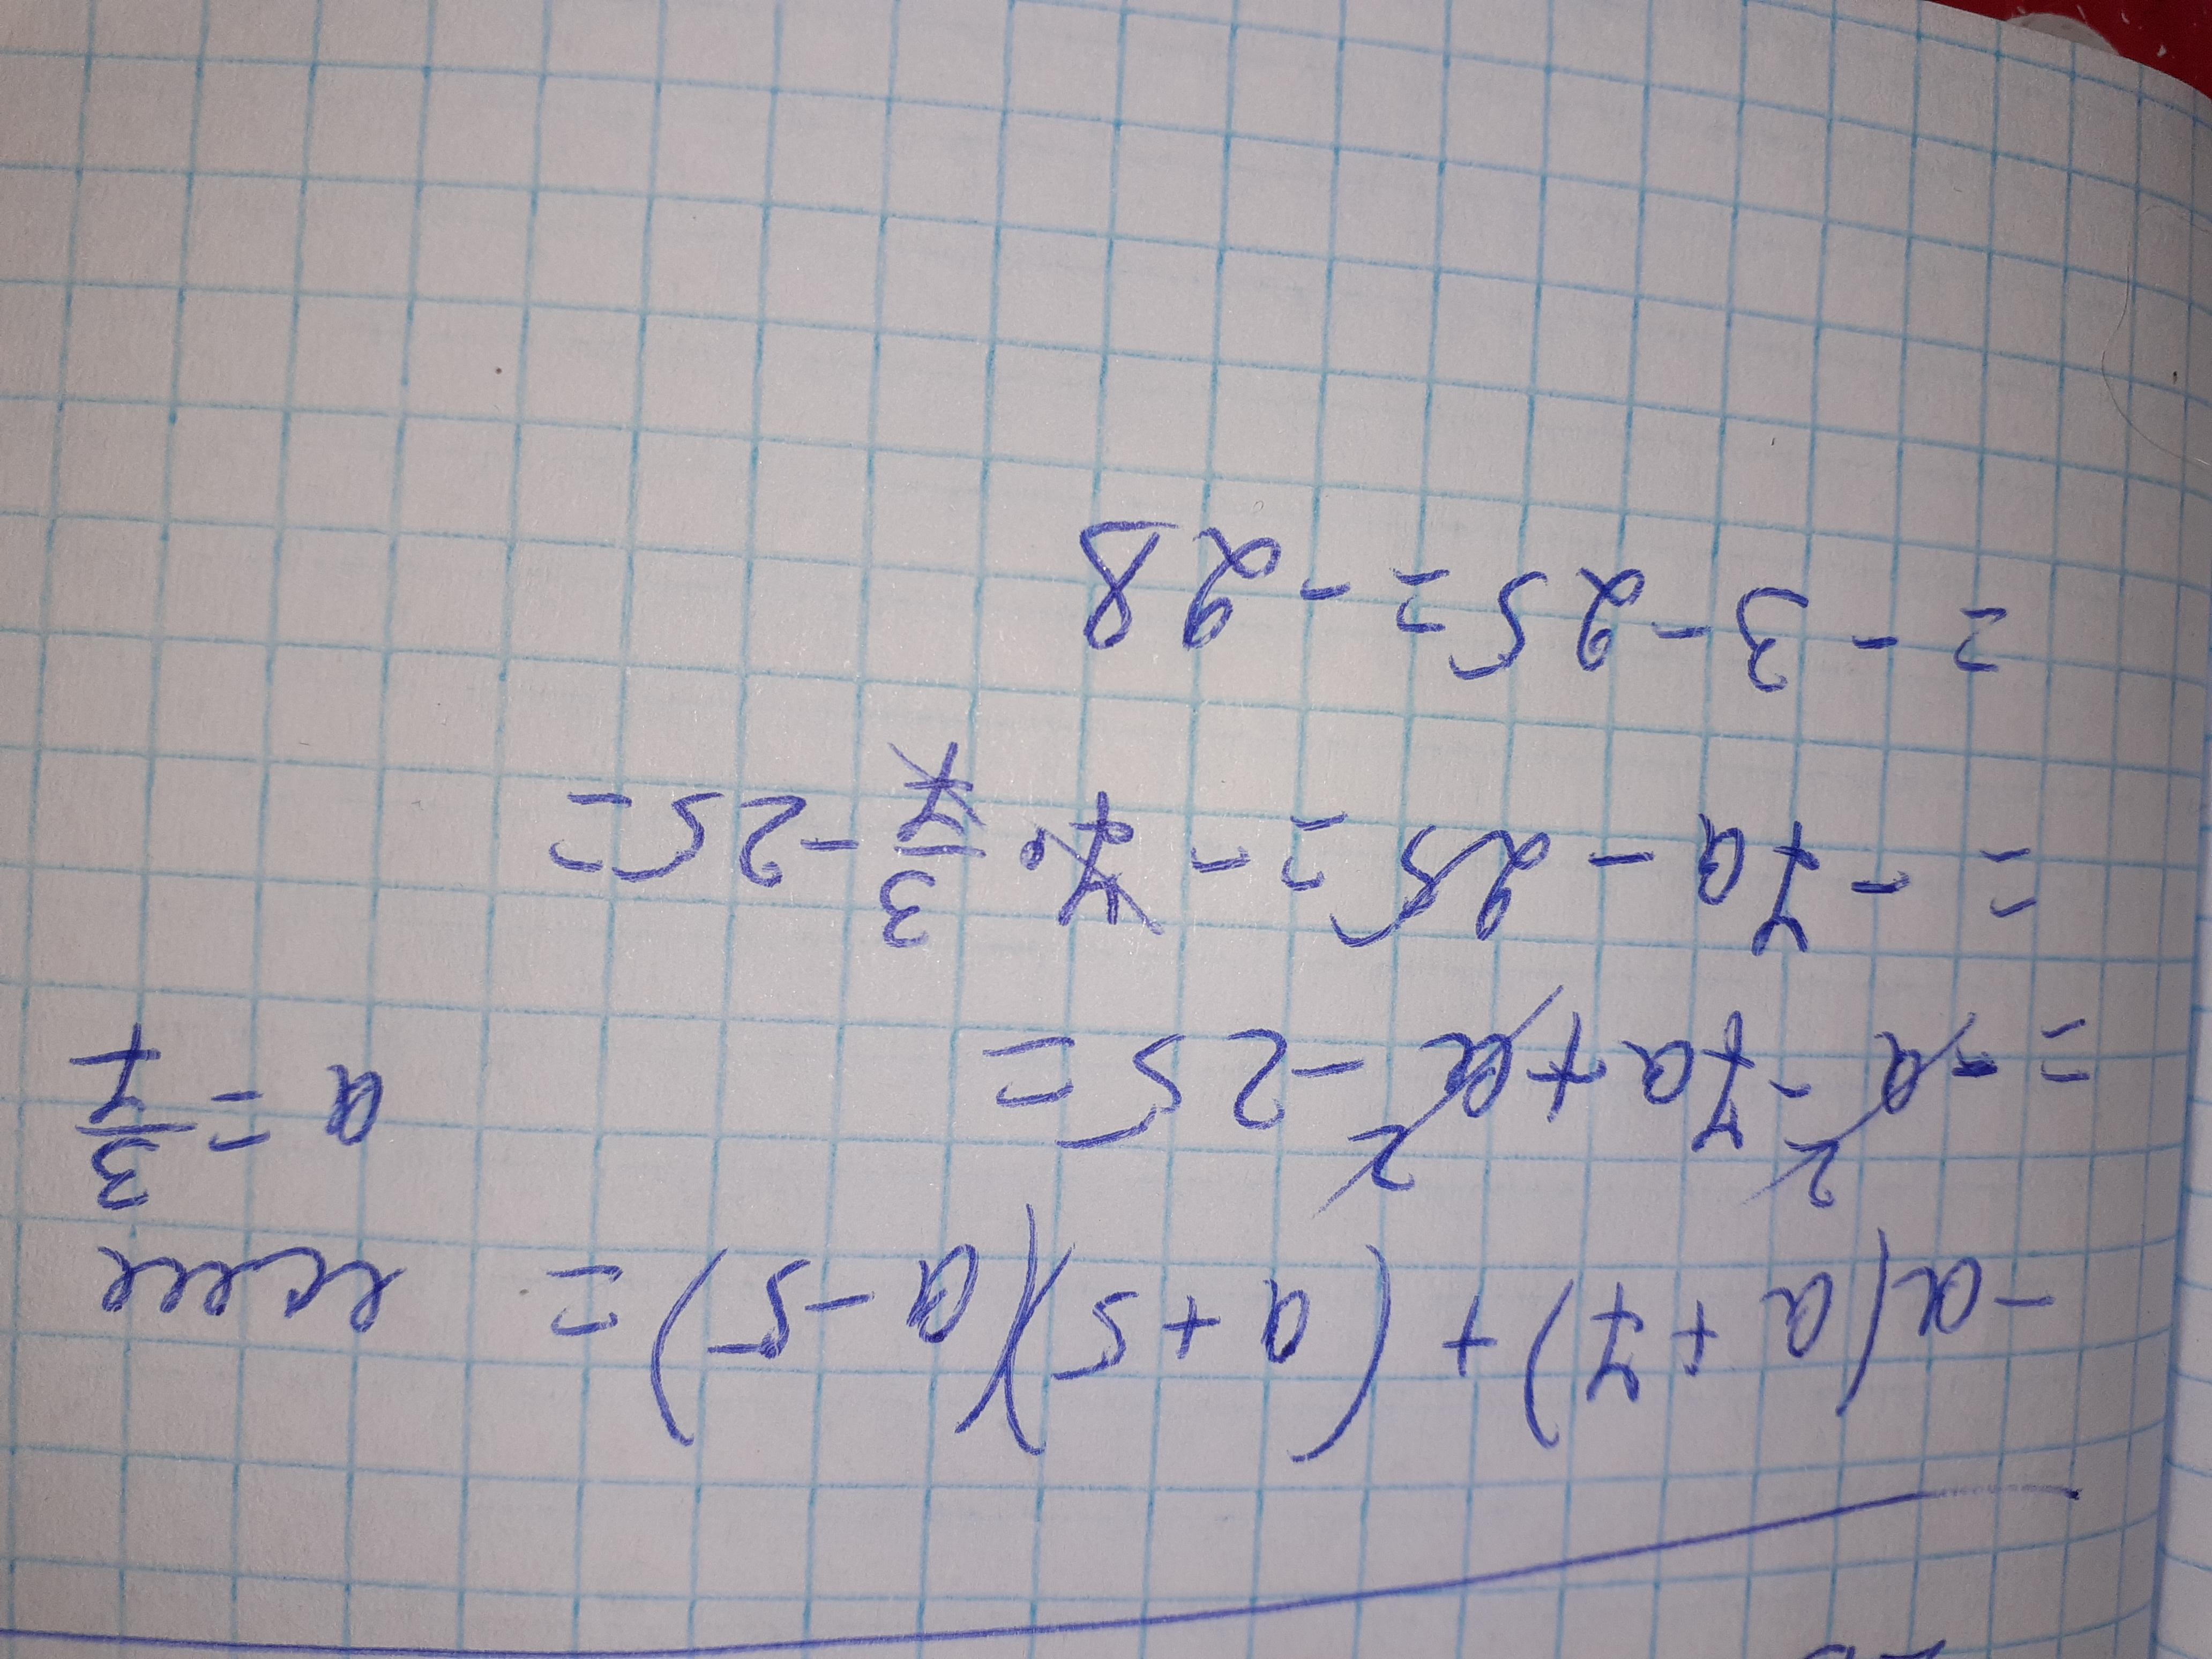 -a(a+7)+(a+5)(a-5)= если
=-a²-7a+a²-25= a=3/7
=-7a-25=-7·3/7-25=
=-3-25=-28